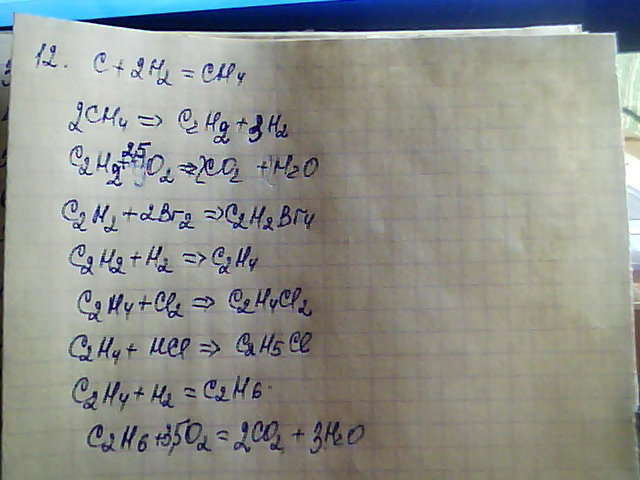 12. C + 2H₂ = CH₄
2CH₄ => C₂H₂ + 3H₂
C₂H₂ + 2,5O₂ => 2CO₂ + H₂O
C₂H₂ + 2Br₂ => C₂H₂Br₄
C₂H₂ + H₂ => C₂H₄
C₂H₄ + Cl₂ => C₂H₄Cl₂
C₂H₄ + HCl => C₂H₅Cl
C₂H₄ + H₂ = C₂H₆.
C₂H₆ + 3,5O₂ = 2CO₂ + 3H₂O